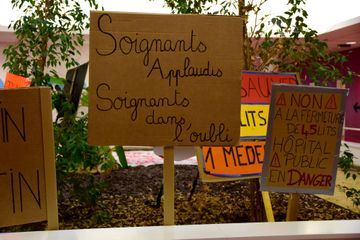 Soignants
Applaudis
Soignants
dans
l'oubli
SAUVER
LITS
1 MEDE
⚠ NON ⚠
À LA FERMETURE
DE 45 LITS
HÔPITAL
⚠ PUBLIC
EN DANGER
IN
FIN